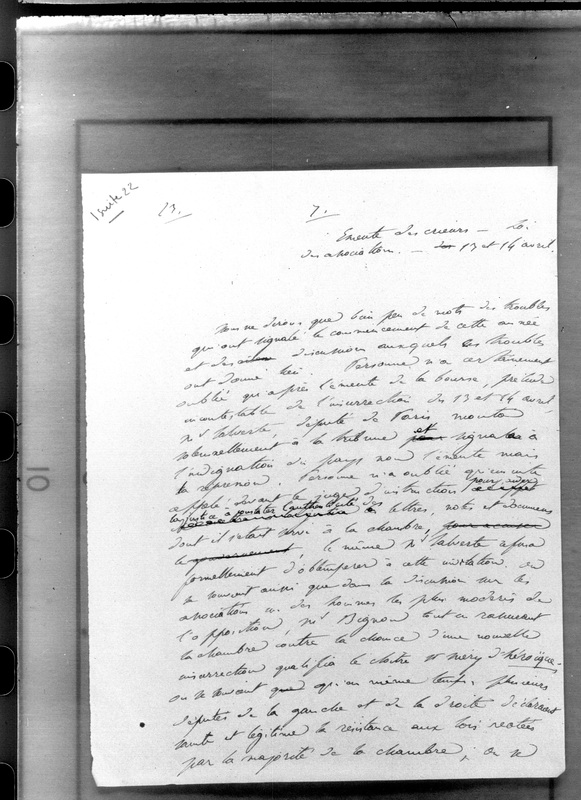 1 suite 22
13. 7.
Emeute des crieurs — Loi
des associations. — 13 et 14 avril.
Nous ne dirons que bien peu de mots des troubles
qui ont signalé le commencement de cette année
et des discussions auxquels ces troubles
ont donné lieu. Personne n'a certainement
oublié qu'après l'émeute de la bourse, prélude
incontestable de l'insurrection des 13 et 14 avril,
Mr Salverte député de Paris monta
solennellement à la tribune et signala à
l'indignation du pays non l'émeute mais
la répression. Personne n'a oublié qu'ensuite
appelé devant le juge d'instruction pour aider
la justice à constater l'authenticité des lettres, notes et documens
dont il s'etait servi à la chambre, pour accuser
le gouvernement, le même Mr Salverte refusa
formellement d'obtempérer à cette invitation. On
se souvient aussi que dans la discussion sur les
associations un des hommes les plus modérés de
l'opposition, Mr Bignon tout en rassurant
la chambre contre la chance d'une nouvelle
insurrection qualifia le cloître St Mery d'héroïque.
on se souvient qu'en même temps, plusieurs
députés de la gauche et de la droite déclarèrent
sainte et légitime la résistance aux lois votées
par la majorité de la chambre ; on se
10